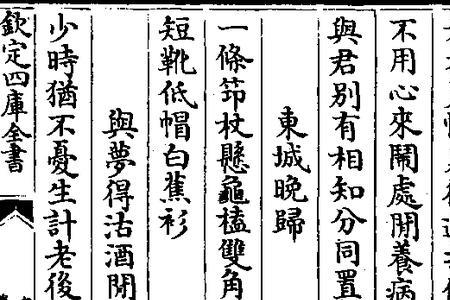 不用心來鬧處閒養病
與君别有相知分同置
東城晚歸
一條筇杖懸龜榼雙角
短靴低帽白蕉衫
與夢得沽酒閒
少時猶不憂生計老後
欽定四庫全書